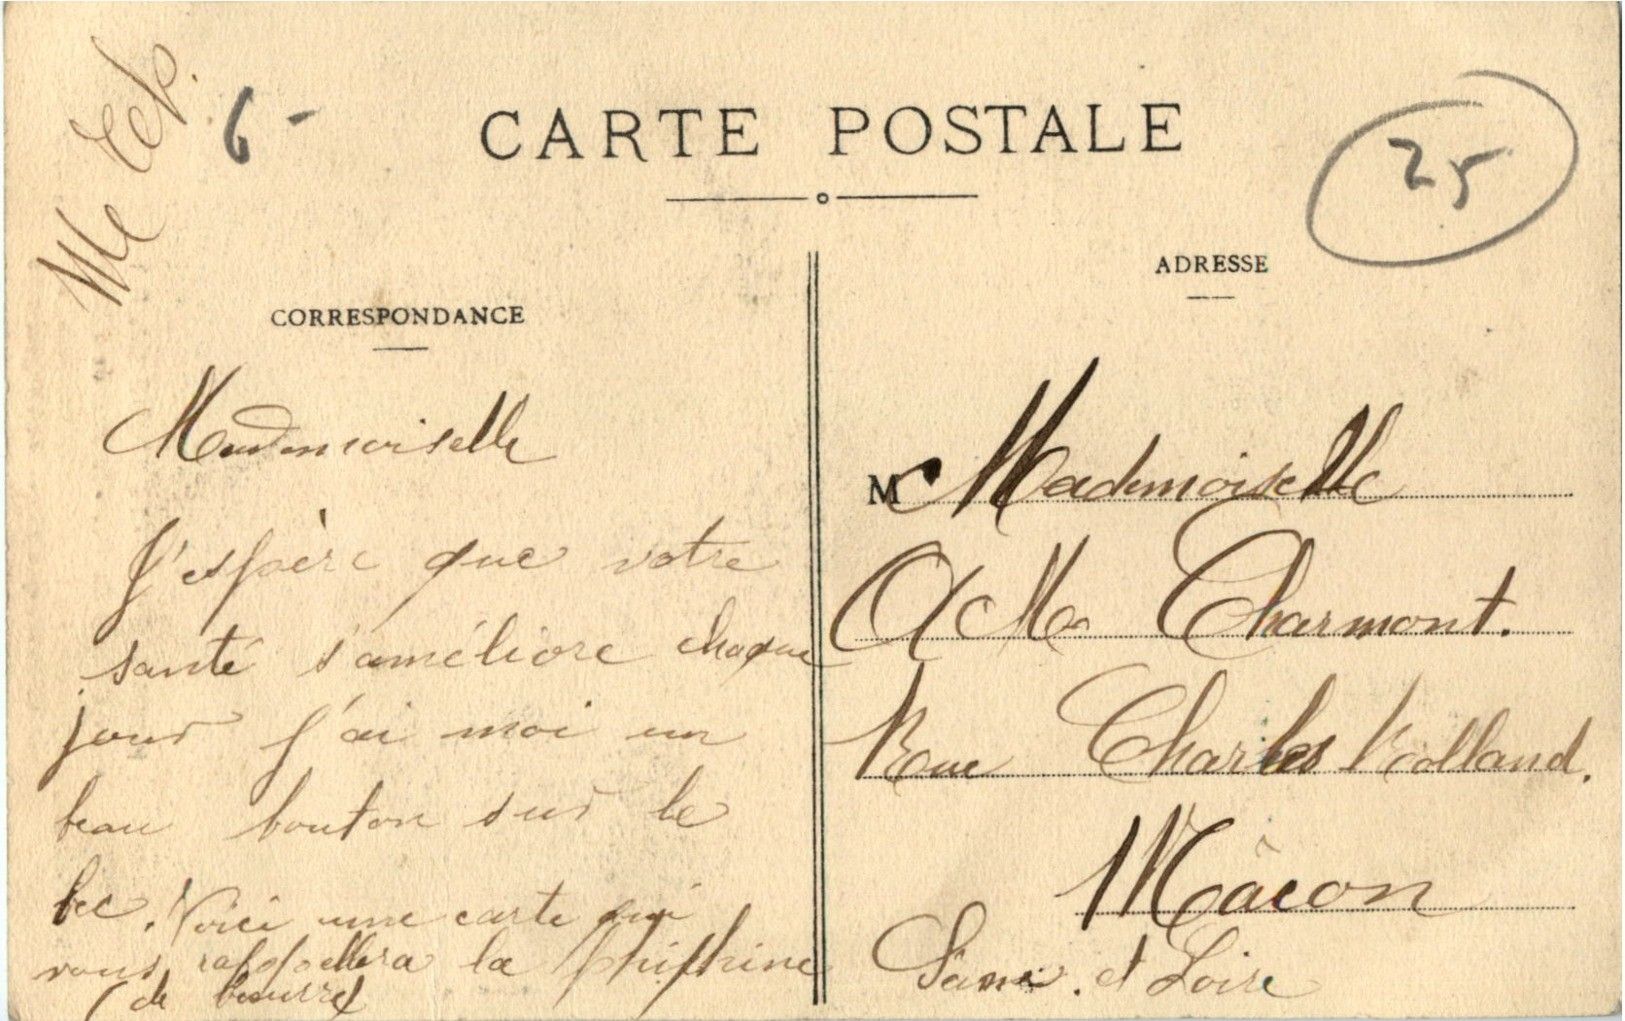 6-
CARTE POSTALE
25
CORRESPONDANCE
Mademoiselle
J'espère que votre
santé s'améliore chaque
jour j'ai moi un
beau bouton sur le
bec. Voici une carte qui
vous rappellera la
de beurre
ADRESSE
M Mademoiselle
Charmont.
Rue Charles Rolland.
Mâcon
Saone et Loire